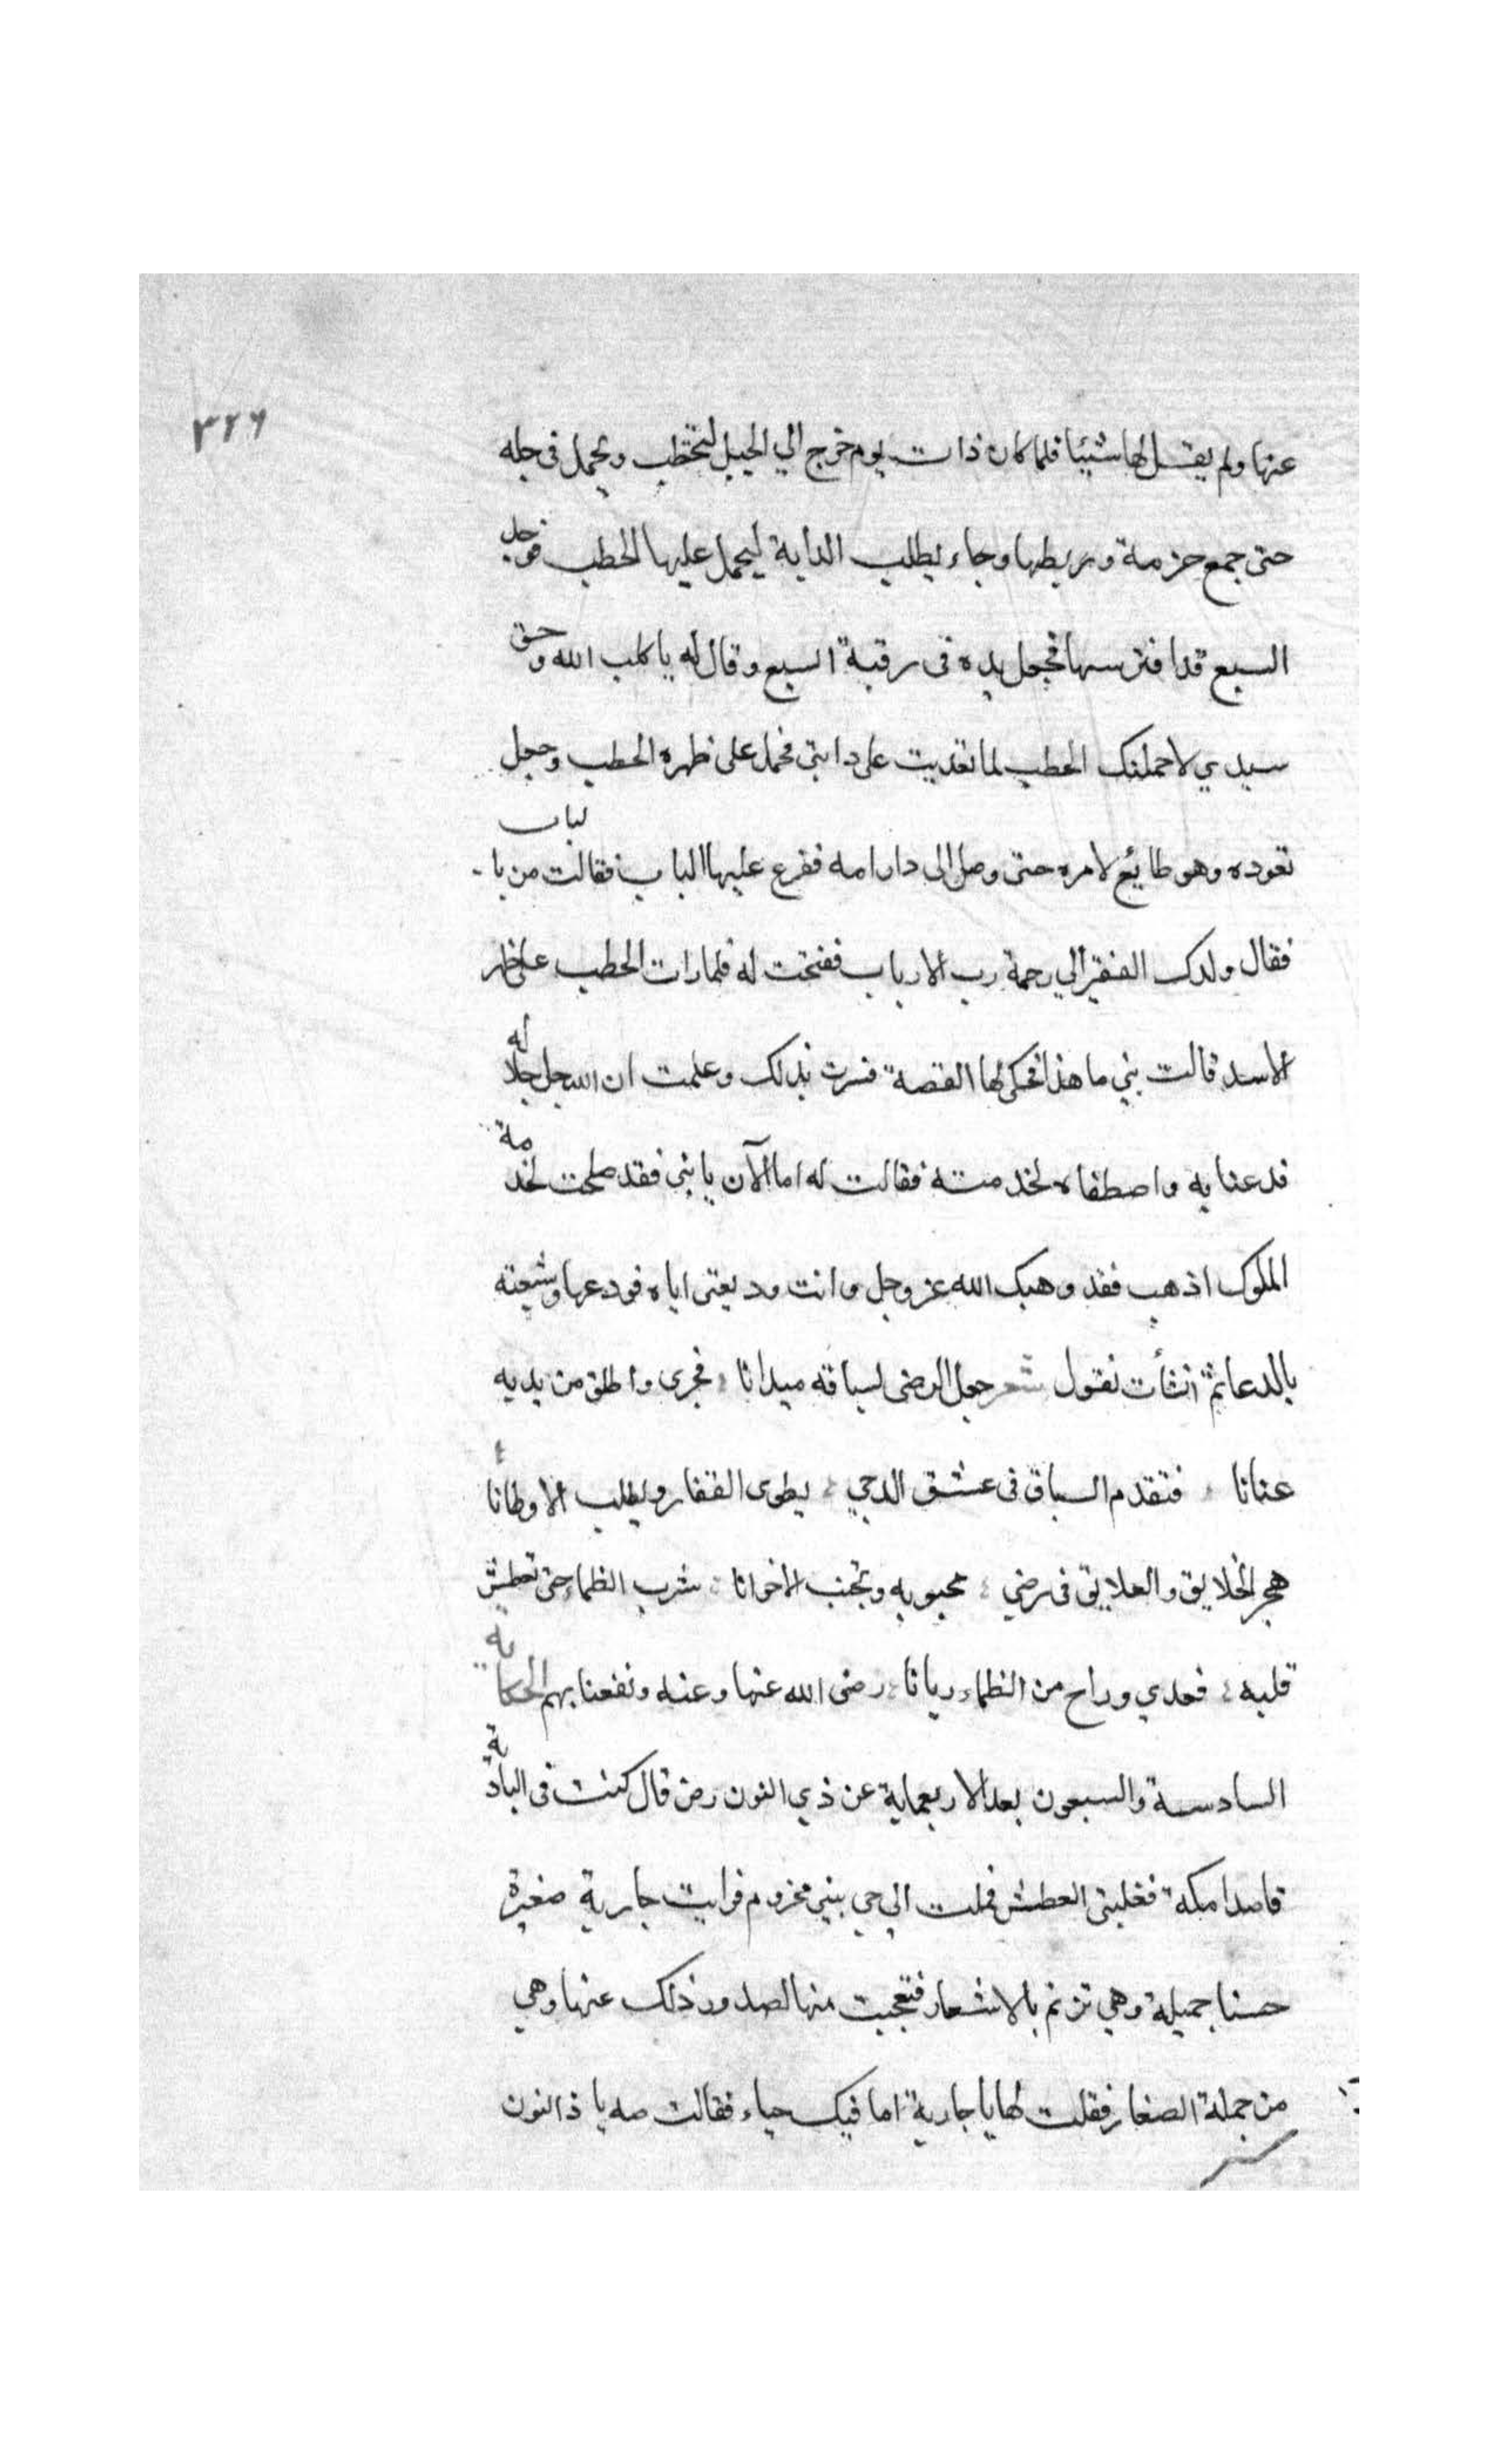 ٣٢٦
عنها ولم يقل لها شيئا فلما كان ذات يوم خرج الي الجبل ليحتطب ويحمل في حبله
حتى جمع حزمة وربطها وجاء يطلب الدابة ليحمل عليها الحطب فوجد
السبع قد افترسها فجعل يده في رقبة السبع وقال له يا كلب الله وحق
سيدي لاحملنك الحطب لما تعديت على دابتي فحمل على ظهره الحطب وجعل
تقوده وهو طايع لامره حتى وصل الى دار امه فقرع عليها الباب فقالت من بالباب
فقال ولدك الفقير الي رحمة رب الارباب ففتحت له فلما رات الحطب على ظهر
الاسد قالت بني ما هذا فحكى لها القصة فسرت بذلك وعلمت ان الله جل جلاله
قد عنا به واصطفاه لخدمته فقالت له اما الآن يا بني فقد صلحت لخدمة
الملوك اذهب فقد وهبتك الله عز وجل وانت وديعتي اياه فودعها وشيعته
بالدعا ثم انشأت تقول شعر جعل الرضى لسباقه ميدانا ؛ فجرى واطلق من يديه
عنانا ؛ فتقدم السباق في عشق الدجي ؛ يطوى القفار ويطلب الاوطانا ؛
هجر الخلايق والعلايق في رضي ؛ محبوبه وتجنب الاخوانا ؛ شرب الظماء حتى تعطش
قلبه ؛ فغدي وراح من الظماء ريانا ؛ رضى الله عنها وعنه ونفعنا بهم الحكاية
السادسة والسبعون بعد الاربعماية عن ذي النون رضى قال كنت في البادية
قاصدا مكة فغلبني العطش فملت الي حي بني مخزوم فرايت جارية صغيرة
حسنا جميلة وهي ترنم بالاشعار فتعجبت منها لصدور ذلك عنها وهي
من جملة الصغار فقلت لها يا جارية اما فيك حياء فقالت صه يا ذا النون